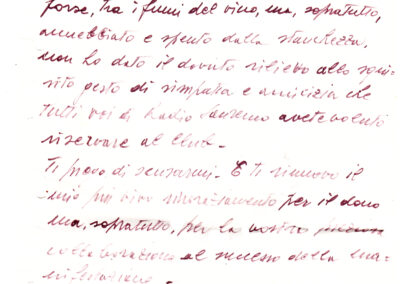 forse, tra i fumi del vino, ma, sopratutto,
annebbiato e spento dalla stanchezza,
non ho dato il dovuto rilievo allo squi-
sito gesto di simpatia e amicizia che
tutti voi di Radio Sanremo avete voluto
riservare al Club.
Ti prego di scusarmi. E ti rinnovo il
mio più vivo ringraziamento per il dono
ma, sopratutto, per la vostra
collaborazione al successo della ma-
nifestazione.